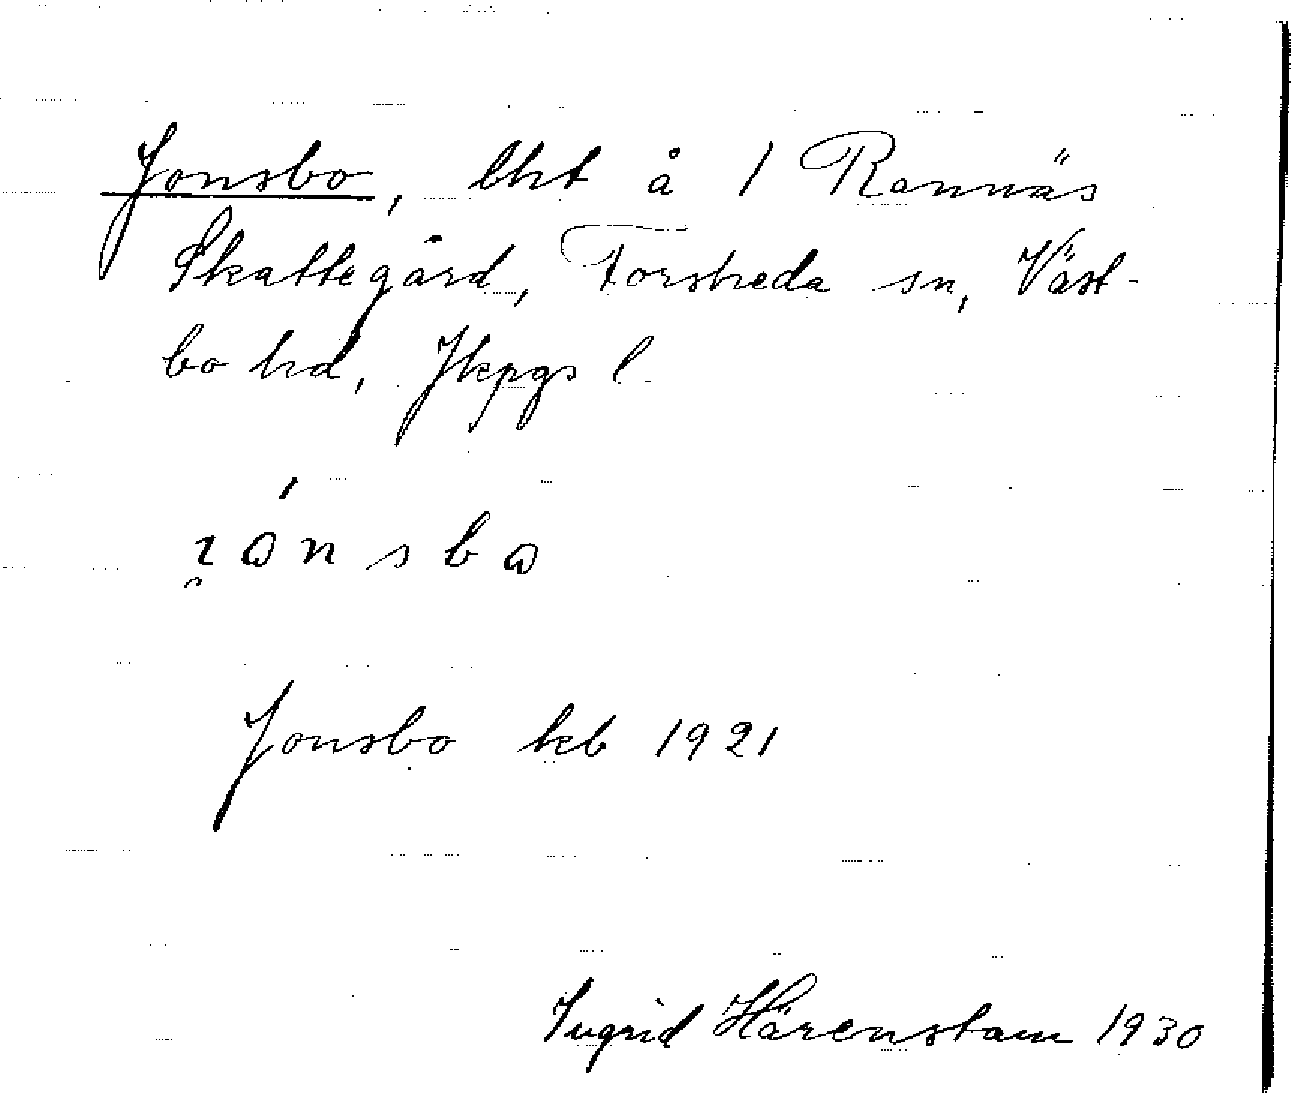 Jonsbo, lht å 1 Rannäs
Skattegård, Forsheda sn, Väst-
bo hd, Jkpgs l
Jonsbo kb 1921
Ingrid Härenstam 1930